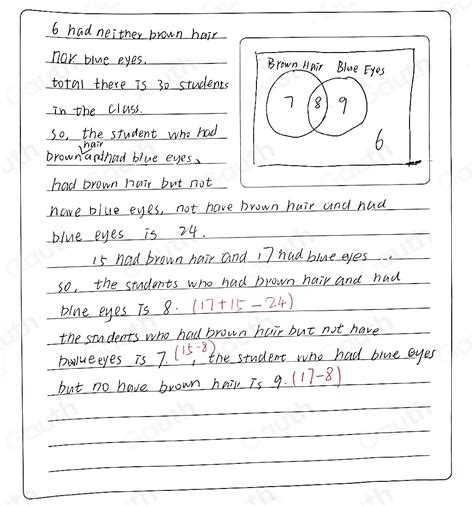 6 had neither brown hair
nor blue eyes.
total there is 30 students
in the class.
so, the student who had
hair
brown and had blue eyes,
had brown hair but not
have blue eyes, not have brown hair and had
blue eyes is 24.
15 had brown hair and 17 had blue eyes.
so, the students who had brown hair and had
blue eyes is 8. (17+15-24)
the students who had brown hair but not have
blue eyes is 7. (15-8), the student who had blue eyes
but no have brown hair is 9. (17-8)
Brown Hair Blue Eyes
7 8 9
6
Gauth